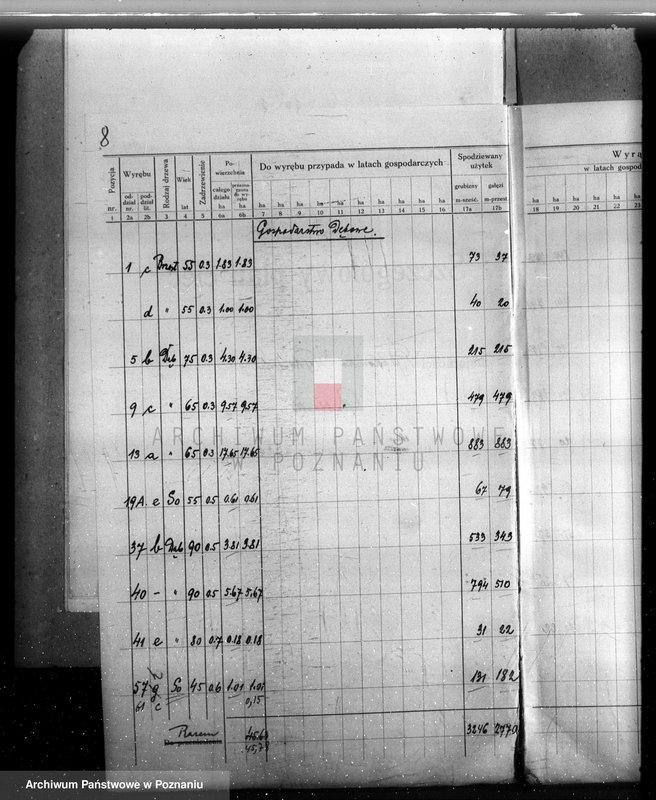 8
Pozycja nr. Wyrębu oddział nr. pododdział lit. Rodzaj drzewa Wiek lat Zadrzewienie Powierzchnia całego działu ha przeznaczona do wyrębu ha Do wyrębu przypada w latach gospodarczych Spodziewany użytek grubizny m-sześć. gałęzi m-przest. Wyrą
w latach gospod
ha ha ha ha ha ha ha ha ha ha ha ha ha ha ha
1 2a 2b 3 4 5 6a 6b 7 8 9 10 11 12 13 14 15 16 17a 17b 18 19 20 21 22 23
Gospodarstwo Dębowe.
1 c Brzoz 55 0.3 1.83 1.83 73 37
d " 55 0.3 1.00 1.00 40 20
5 b Dąb 75 0.3 4.30 4.30 215 215
9 c " 65 0.3 9.57 9.57 479 479
13 a " 65 0.3 17.65 17.65 883 883
ARCHIWUM PAŃSTWOWE
W POZNANIU
19A. e So 55 0.5 0.61 0.61 67 79
37 b Dąb 90 0.5 3.81 3.81 533 343
40 - " 90 0.5 5.67 5.67 794 510
41 e " 80 0.7 0.18 0.18 31 22
57 g So 45 0.6 1.01 1.01 131 182
61 c 0,15
Razem 45.63 3246 2770
Do przeniesienia 45,78
Archiwum Państwowe w Poznaniu